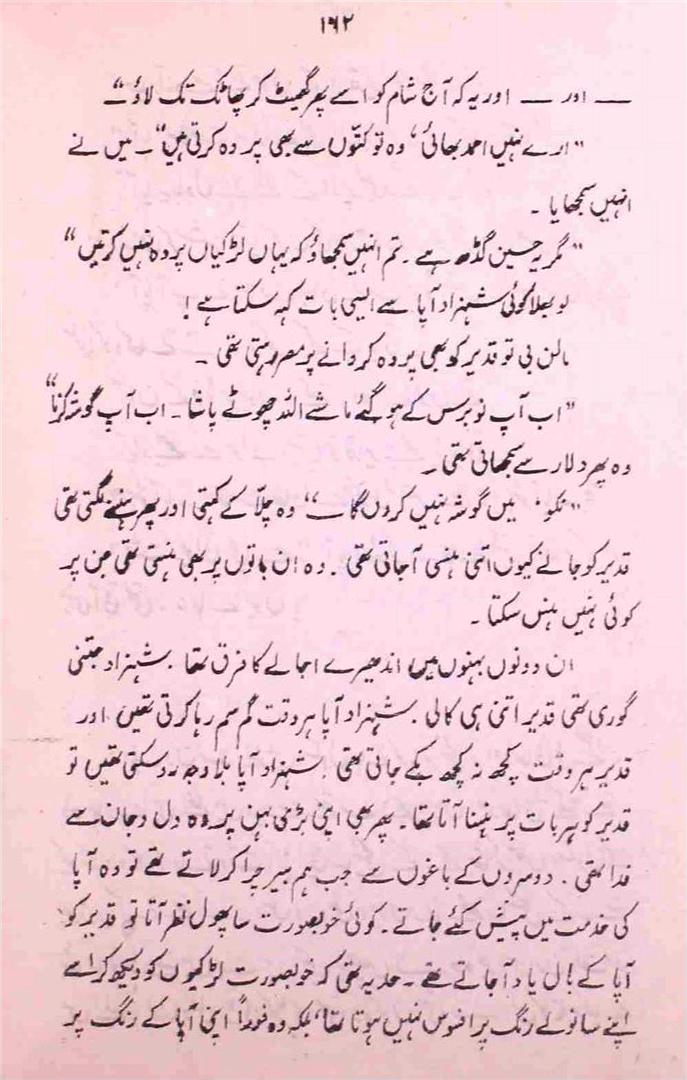 ۱۶۲
— اور — اور یہ کہ آج شام کو اسے پھر گھیٹ کر پھاٹک تک لاؤ ۔"
"ارے نہیں احمد بھائی، وہ تو کتّوں سے بھی پردہ کرتی ہیں"۔ میں نے
انہیں سمجھایا ۔
"مگر یہ حسین گڈھ ہے ۔ تم انہیں سمجھاؤ کہ یہاں لڑکیاں پردہ نہیں کرتیں"
لو بھلا کوئی شہزاد آپا سے ایسی بات کہہ سکتا ہے !
مالن بی تو قدیر کو بھی پردہ کروانے پر مصر رہتی تھی ۔
"اب آپ نو برس کے ہو گئے ماشے اللہ چھوٹے پاشا ۔ اب آپ گوشہ کرنا"
وہ پھر دلار سے سمجھاتی تھی ۔
"نکو، میں گوشہ نہیں کروں گا —" وہ چلّا کے کہتی اور پھر ہنسنے لگتی تھی
قدیر کو جانے کیوں اتنی ہنسی آ جاتی تھی ۔ وہ ان باتوں پر بھی ہنستی تھی جن پر
کوئی نہیں ہنس سکتا ۔
ان دونوں بہنوں میں اندھیرے اجالے کا فرق تھا ۔ شہزاد جتنی
گوری تھی قدیر اتنی ہی کالی ۔ شہزاد آپا ہر وقت گم سم رہا کرتی تھیں اور
قدیر ہر وقت کچھ نہ کچھ بکے جاتی تھی ۔ شہزاد آپا بلا وجہ رو سکتی تھیں تو
قدیر کو ہر بات پر ہنسنا آتا تھا ۔ پھر بھی اپنی بڑی بہن پر وہ دل و جان سے
فدا تھی ۔ دوسروں کے باغوں سے جب ہم بیر چرا کر لاتے تھے تو وہ آپا
کی خدمت میں پیش کئے جاتے ۔ کوئی خوبصورت سا پھول نظر آتا تو قدیر کو
آپا کے بال یاد آ جاتے تھے ۔ حد یہ تھی کہ خوبصورت لڑکیوں کو دیکھ کر اسے
اپنے سانولے رنگ پر افسوس نہیں ہوتا تھا، بلکہ وہ فوراً اپنی آپا کے رنگ پر